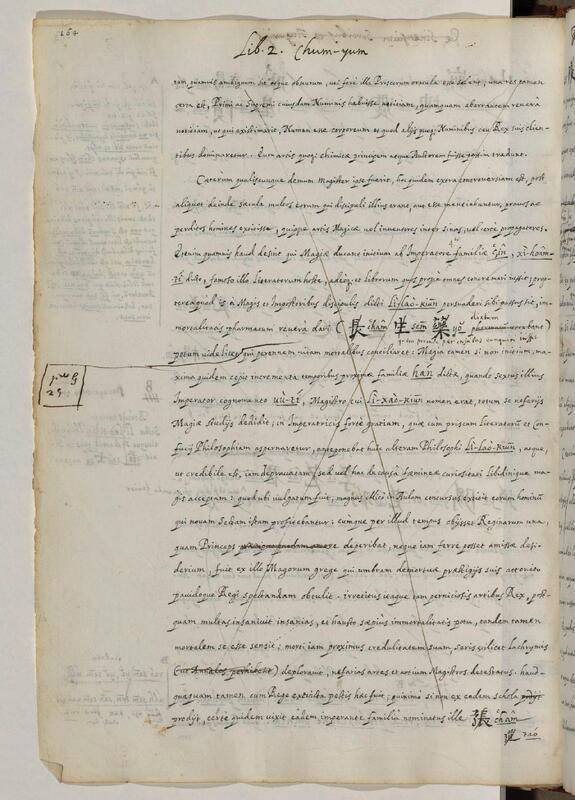 164
Lib. 2. Chum-yum
tam quamvis ambiguum sit atque obscurum, uti fere illa Priscorum oracula esse solent; una res tamen
certa est, Primi ac Supremi cuiusdam Numinis habuisse notitiam, quamquam aberrantem a vera
notitiam, ut qui existimaret, Numen esse corporeum et quod alijs quoq; Numinibus ceu Rex suis clien-
tibus dominaretur. Eum artis quoq; chimicæ principem atque Autorem fuisse passim tradunt.
Cæterum qualiscunque demum Magister ipse fuerit, hoc quidem extra controversiam est, post
aliquot deinde sæcula multos eorum qui discipuli illius erant, aut esse mentiebantur, pravos ac
perditos homines extitisse, quique artis Magicæ vel inventores inter Sinas vel certe propagatores.
Etenim quamvis haud desint qui Magiæ ducant initium ab Imperatore familiæ çîn, xì-hoâm-
tí dicto, famoso illo literatorum hoste, adeoq; et librorum quos propè omnes concremari iussit; prop-
terea quod is à Magis et Impostoribus discipulis dicti Li-lao-kiun persuaderi sibi passus sit, im-
mortalitatis pharmacum revera dari ( 長 châm 生 sem 藥 yo dictum
quem proinde per insulas conquiri iussit
potum videlicet qui perennem vitam mortalibus conciliaret: Magia tamen si non initium, ma-
xima quidem cepit incrementa temporibus proximæ familiæ hán dictæ, quando sextus illius
Imperator cognomento uù-tí, Magistro cui Li-xao-kiun nomen erat, totum se nefarijs
Magiæ studijs dedidit; in Imperatricis forte gratiam, quæ cum priscam Literatorum et Con-
fucij Philosophiam aspernaretur, anteponebat huic alteram Philosophi Li-lao-kiun, atque,
ut credibile est, iam depravatam; sed vel hac de causa fæmineæ curiositati libidinique ma-
gis acceptam: quod ubi vulgatum fuit, magnus illico in Aulam concursus extitit eorum hominum
qui novam Sectam istam profitebantur: cumque per illud tempus obijsset Reginarum una,
quam Princeps deperibat, neque iam ferre posset amissæ desi-
derium, fuit ex illo Magorum grege qui umbram demortuæ præstigijs suis attonito
pavidoque Regi spectandam obtulit. irretitus itaque tam perniciosis artibus Rex, post-
quam multas insanivit insanias, et hausto sæpius immortalitatis potu, tandem tamen
mortalem se esse sensit; morti iam proximus credulitatem suam, seris scilicet lachrymis
(ut Annales perhibent) deploravit, nefarias artes et artium Magistros detestatus. haud-
quaquam tamen cum Rege extincta pestis hæc fuit; quinimò si non ex eadem schola
prodijt, certe quidem vixit eâdem imperante familiâ nominatus ille 張 châm